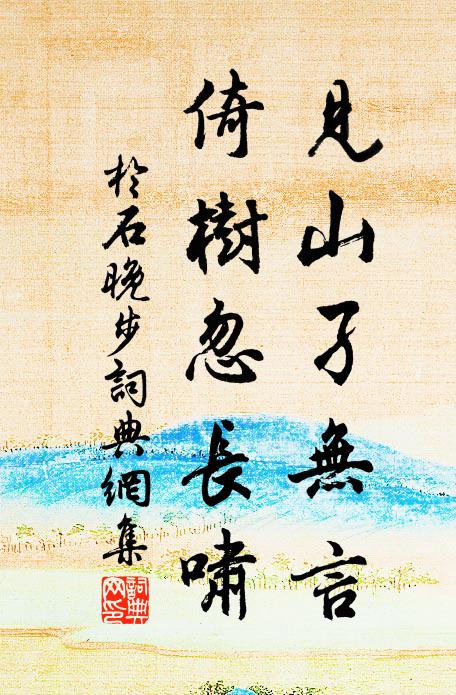 見山了無言
倚樹忽長嘯
於石晚步詞典網集